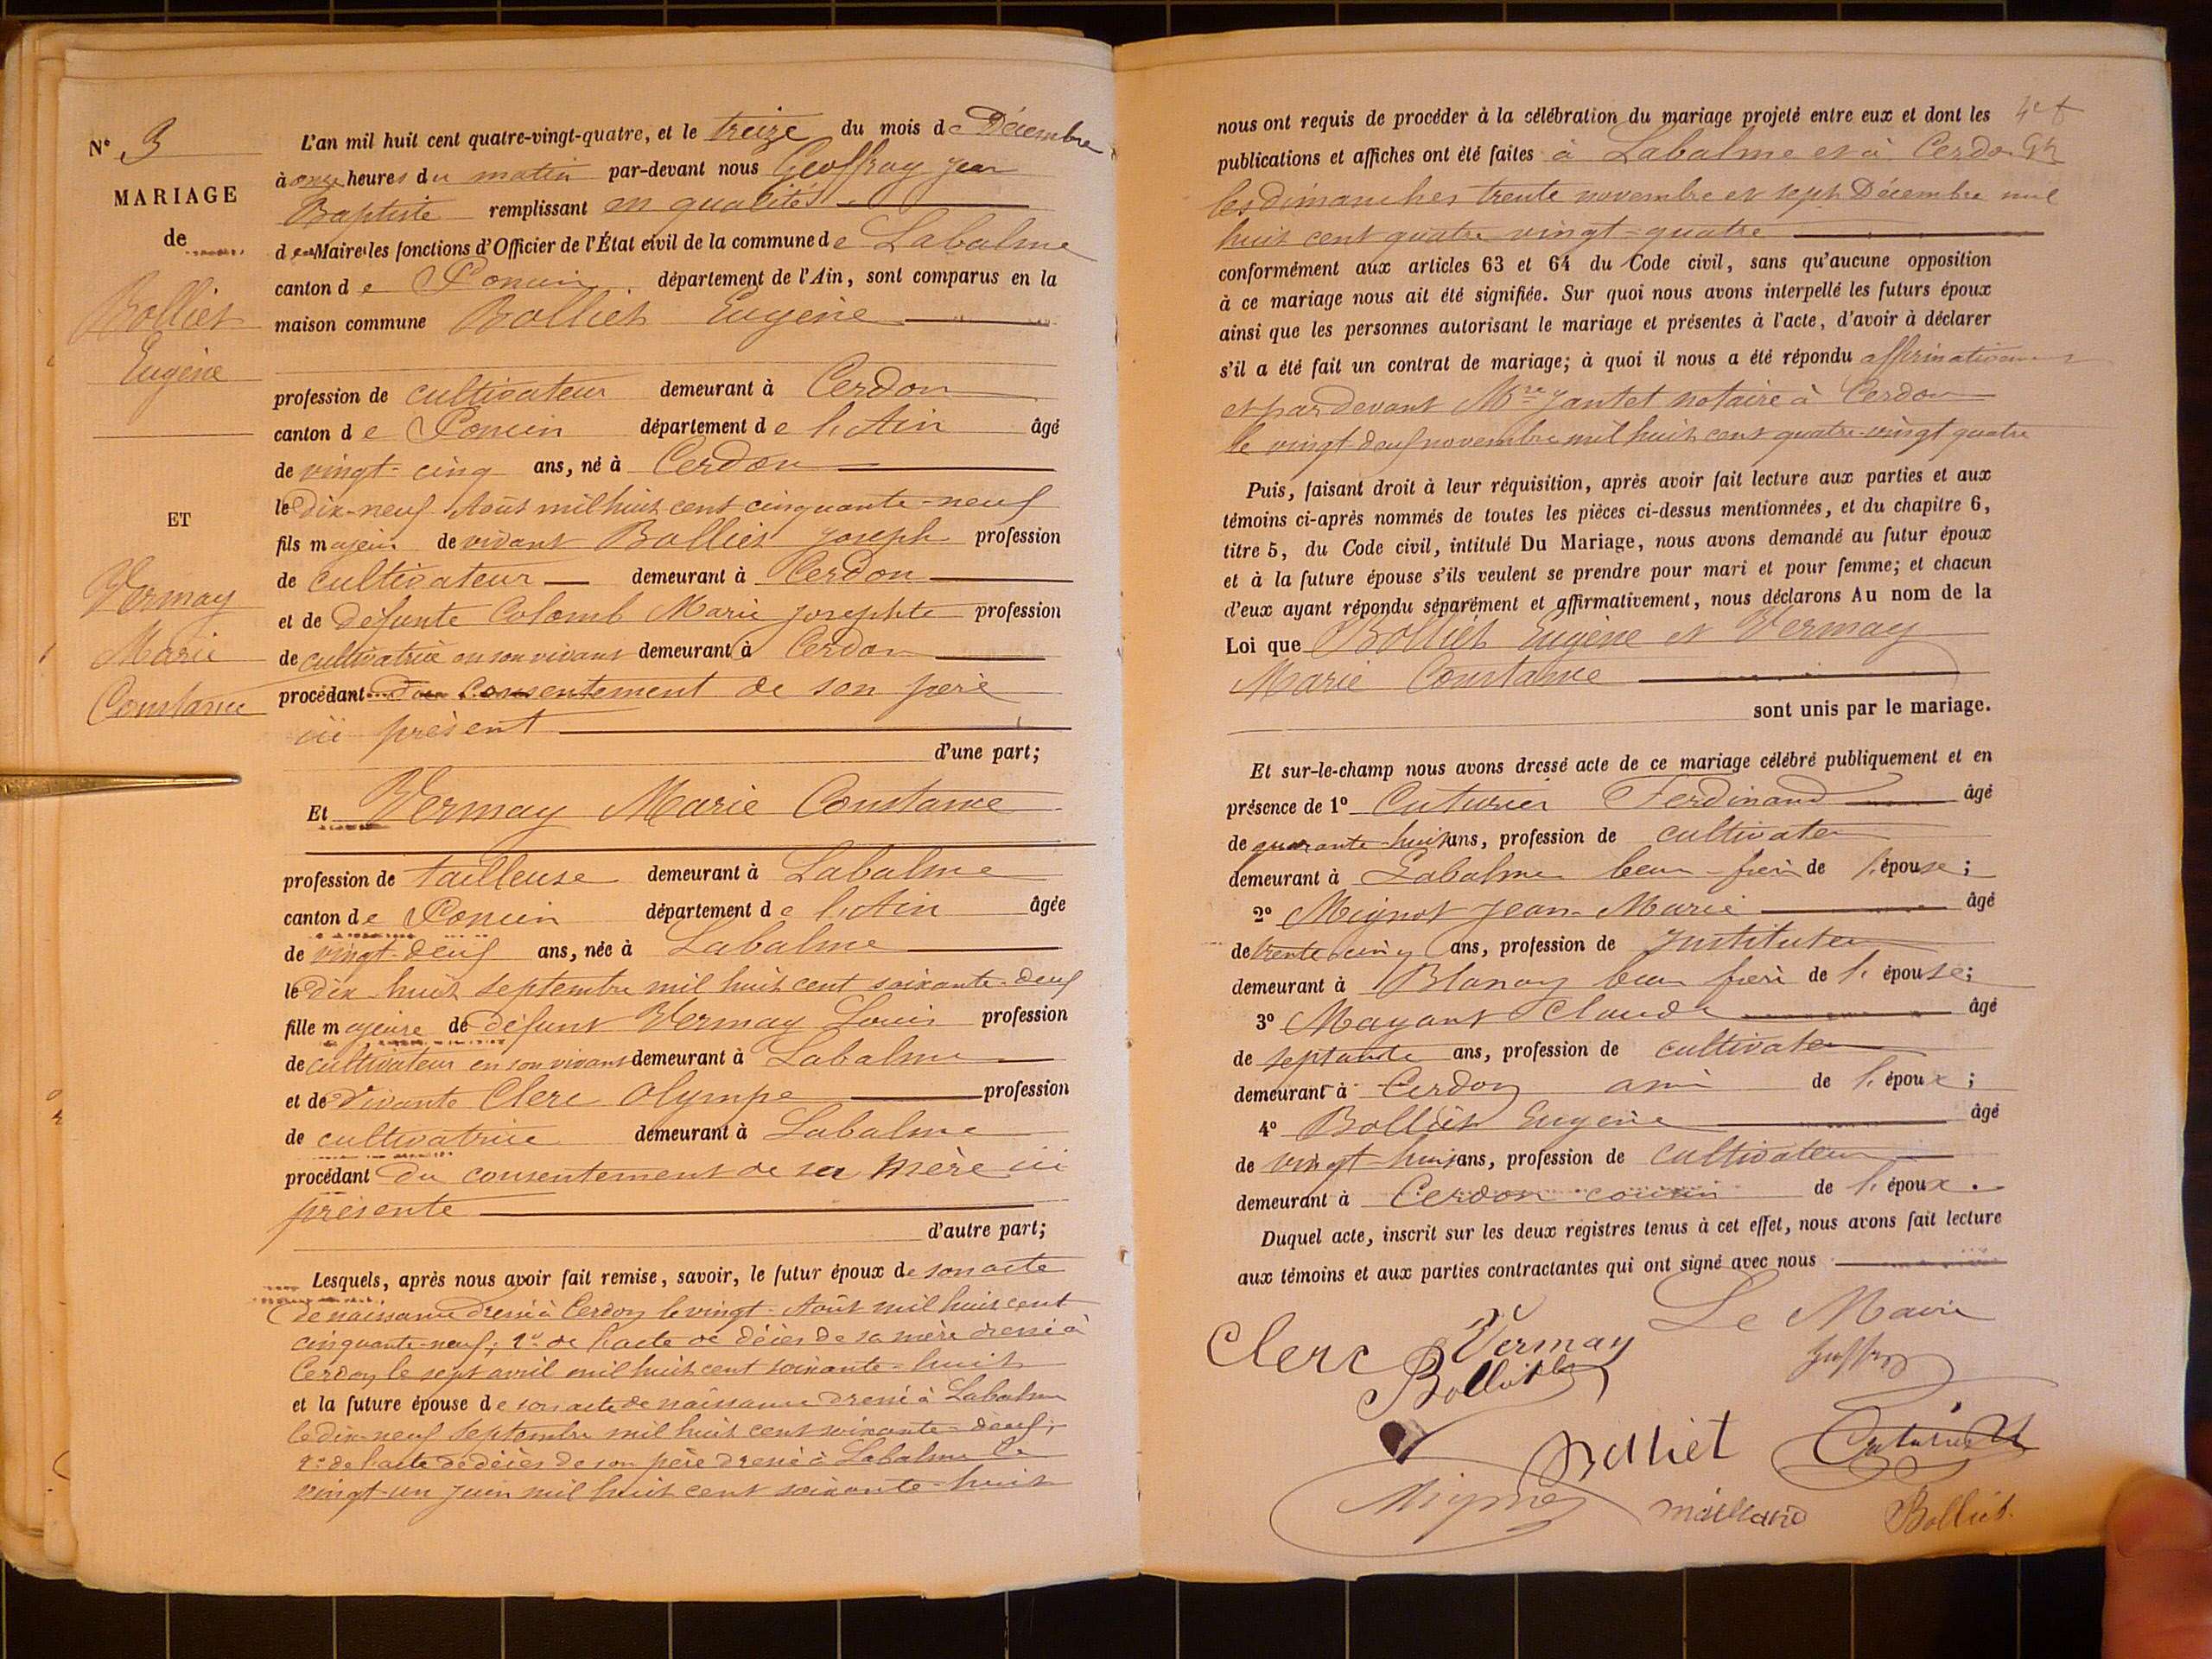 N° 3
MARIAGE
de
Bolliet
Eugène
ET
Vermay
Marie
Constance
L'an mil huit cent quatre-vingt-quatre, et le treize du mois de Décembre
à onze heures du matin par-devant nous Geoffray Jean
Baptiste remplissant en qualité
de Maire les fonctions d'Officier de l'État civil de la commune de Labalme
canton de Poncin département de l'Ain, sont comparus en la
maison commune Bolliet Eugène
profession de cultivateur demeurant à Cerdon
canton de Poncin département de l'Ain âgé
de vingt-cinq ans, né à Cerdon
le dix-neuf Août mil huit cent cinquante-neuf
fils majeur de vivant Bolliet Joseph profession
de cultivateur demeurant à Cerdon
et de défunte Colomb Marie Josephte profession
de cultivatrice en son vivant demeurant à Cerdon
procédant du consentement de son père
ici présent
d'une part;
Et Vermay Marie Constance
profession de tailleuse demeurant à Labalme
canton de Poncin département de l'Ain âgée
de vingt-deux ans, née à Labalme
le dix-huit septembre mil huit cent soixante-deux
fille majeure de défunt Vermay Louis profession
de cultivateur en son vivant demeurant à Labalme
et de vivante Clerc Olympe profession
de cultivatrice demeurant à Labalme
procédant du consentement de sa mère ici
présente
d'autre part;
Lesquels, après nous avoir fait remise, savoir, le futur époux de son acte
de naissance dressé à Cerdon le vingt Août mil huit cent
cinquante-neuf; 2° de l'acte de décès de sa mère dressé à
Cerdon le sept avril mil huit cent soixante-huit
et la future épouse de son acte de naissance dressé à Labalme
le dix-neuf septembre mil huit cent soixante-deux;
2° de l'acte de décès de son père dressé à Labalme le
vingt-un juin mil huit cent soixante-huit
nous ont requis de procéder à la célébration du mariage projeté entre eux et dont les
publications et affiches ont été faites à Labalme et à Cerdon
les dimanches trente novembre et sept Décembre mil
huit cent quatre vingt-quatre
conformément aux articles 63 et 64 du Code civil, sans qu'aucune opposition
à ce mariage nous ait été signifiée. Sur quoi nous avons interpellé les futurs époux
ainsi que les personnes autorisant le mariage et présentes à l'acte, d'avoir à déclarer
s'il a été fait un contrat de mariage; à quoi il nous a été répondu affirmativement
et par devant Mre Jantet notaire à Cerdon
le vingt-deux novembre mil huit cent quatre-vingt quatre
Puis, faisant droit à leur réquisition, après avoir fait lecture aux parties et aux
témoins ci-après nommés de toutes les pièces ci-dessus mentionnées, et du chapitre 6,
titre 5, du Code civil, intitulé Du Mariage, nous avons demandé au futur époux
et à la future épouse s'ils veulent se prendre pour mari et pour femme; et chacun
d'eux ayant répondu séparément et affirmativement, nous déclarons Au nom de la
Loi que Bolliet Eugène et Vermay
Marie Constance
sont unis par le mariage.
Et sur-le-champ nous avons dressé acte de ce mariage célébré publiquement et en
présence de 1° Cuturier Ferdinand âgé
de quarante-huit ans, profession de cultivateur
demeurant à Labalme beau-frère de l'épouse;
2° Mignot Jean-Marie âgé
de trente cinq ans, profession de Instituteur
demeurant à beau frère de l'épouse;
3° Claude âgé
de septante ans, profession de cultivateur
demeurant à Cerdon ami de l'époux;
4° Bolliet Eugène âgé
de vingt-huit ans, profession de cultivateur
demeurant à Cerdon cousin de l'époux.
Duquel acte, inscrit sur les deux registres tenus à cet effet, nous avons fait lecture
aux témoins et aux parties contractantes qui ont signé avec nous
Le Maire
Clerc Vermay
Bolliet
Bolliet Cuturier
Bolliet